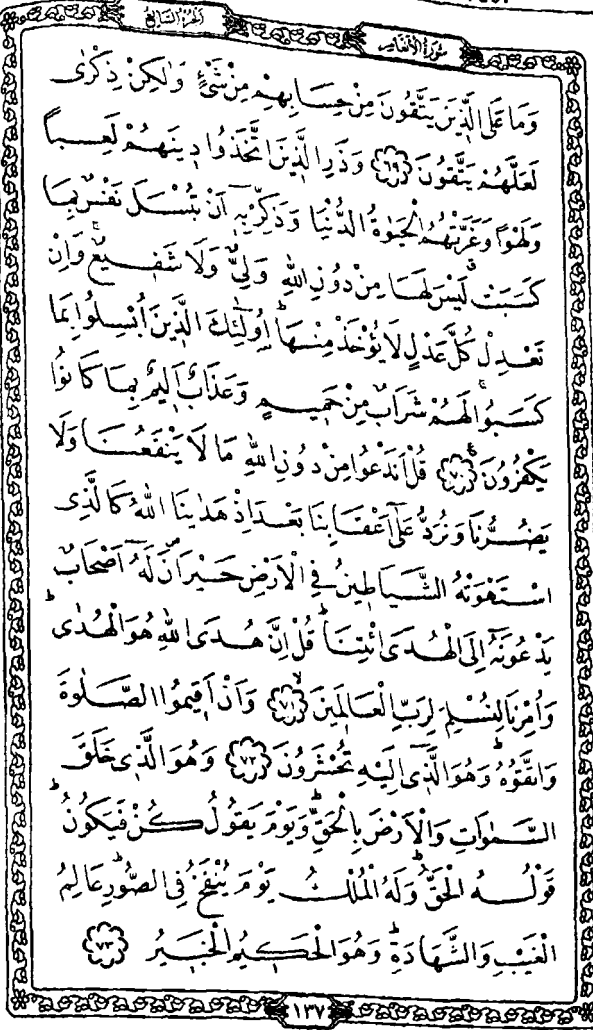 الجزء السابع
سورة الأنعام
وَمَا عَلَى الَّذِينَ يَتَّقُونَ مِنْ حِسَابِهِمْ مِنْ شَيْءٍ وَلٰكِنْ ذِكْرٰى
لَعَلَّهُمْ يَتَّقُونَ ﴿٦٩﴾ وَذَرِ الَّذِينَ اتَّخَذُوا دِينَهُمْ لَعِباً
وَلَهْواً وَغَرَّتْهُمُ الْحَيٰوةُ الدُّنْيَا وَذَكِّرْ بِهِٓ اَنْ تُبْسَلَ نَفْسٌ بِمَا
كَسَبَتْ لَيْسَ لَهَا مِنْ دُونِ اللّٰهِ وَلِيٌّ وَلَا شَفِيعٌ وَاِنْ
تَعْدِلْ كُلَّ عَدْلٍ لَا يُؤْخَذْ مِنْهَا اُولٰٓئِكَ الَّذِينَ اُبْسِلُوا بِمَا
كَسَبُوا لَهُمْ شَرَابٌ مِنْ حَمِيمٍ وَعَذَابٌ اَلِيمٌ بِمَا كَانُوا
يَكْفُرُونَ ﴿٧٠﴾ قُلْ اَنَدْعُوا مِنْ دُونِ اللّٰهِ مَا لَا يَنْفَعُنَا وَلَا
يَضُرُّنَا وَنُرَدُّ عَلٰٓى اَعْقَابِنَا بَعْدَ اِذْ هَدٰينَا اللّٰهُ كَالَّذِى
اسْتَهْوَتْهُ الشَّيَاطِينُ فِى الْاَرْضِ حَيْرَانَ لَهُٓ اَصْحَابٌ
يَدْعُونَهُٓ اِلَى الْهُدَى ائْتِنَا قُلْ اِنَّ هُدَى اللّٰهِ هُوَ الْهُدٰى
وَاُمِرْنَا لِنُسْلِمَ لِرَبِّ الْعَالَمِينَ ﴿٧١﴾ وَاَنْ اَقِيمُوا الصَّلٰوةَ
وَاتَّقُوهُ وَهُوَ الَّذِٓى اِلَيْهِ تُحْشَرُونَ ﴿٧٢﴾ وَهُوَ الَّذِى خَلَقَ
السَّمٰوَاتِ وَالْاَرْضَ بِالْحَقِّ وَيَوْمَ يَقُولُ كُنْ فَيَكُونُ
قَوْلُهُ الْحَقُّ وَلَهُ الْمُلْكُ يَوْمَ يُنْفَخُ فِى الصُّورِ عَالِمُ
الْغَيْبِ وَالشَّهَادَةِ وَهُوَ الْحَكِيمُ الْخَبِيرُ ﴿٧٣﴾
١٣٧